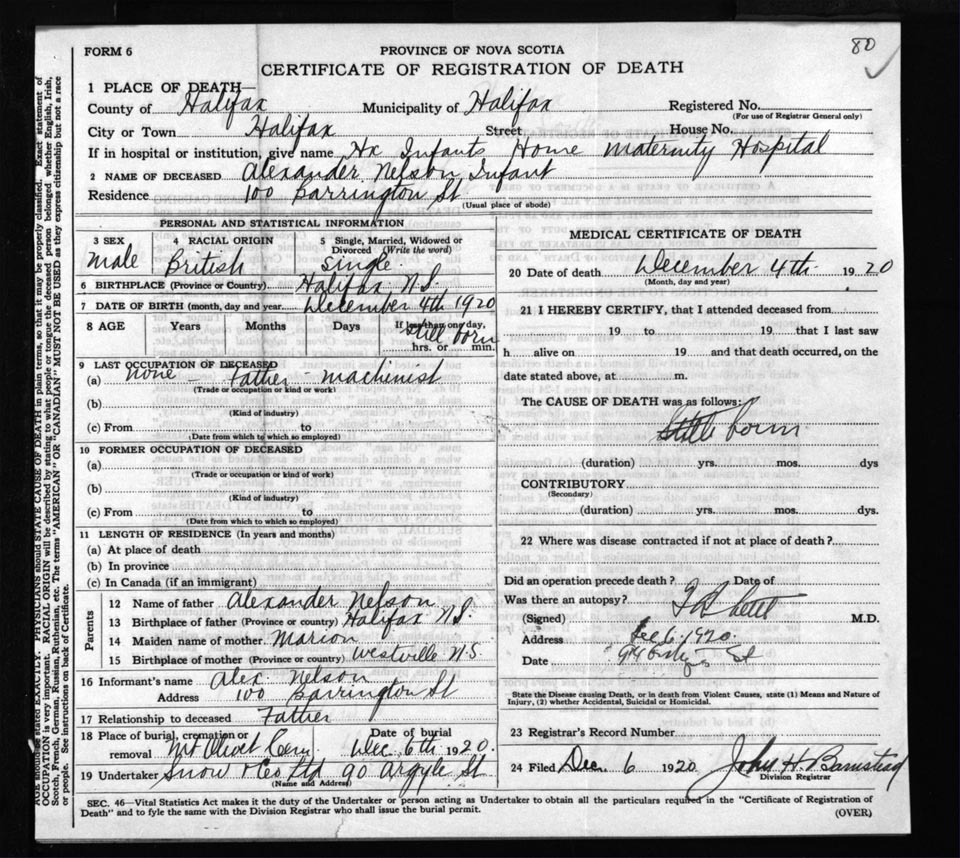 80
FORM 6
PROVINCE OF NOVA SCOTIA
CERTIFICATE OF REGISTRATION OF DEATH
1 PLACE OF DEATH—
County of Halifax Municipality of Halifax Registered No.
(For use of Registrar General only)
City or Town Halifax Street House No.
If in hospital or institution, give name Hx Infants Home Maternity Hospital
2 NAME OF DECEASED Alexander Nelson Infant
Residence 100 Barrington St
(Usual place of abode)
PERSONAL AND STATISTICAL INFORMATION
3 SEX 4 RACIAL ORIGIN 5 Single, Married, Widowed or Divorced (Write the word)
Male British Single
6 BIRTHPLACE (Province or Country) Halifax N.S.
7 DATE OF BIRTH (month, day and year) December 4th 1920
8 AGE Years Months Days If less than one day,
Still born
hrs. or min.
9 LAST OCCUPATION OF DECEASED
(a) None – Father – machinist
(Trade or occupation or kind or work)
(b)
(Kind of industry)
(c) From to
(Date from which to which so employed)
10 FORMER OCCUPATION OF DECEASED
(a)
(Trade or occupation or kind of work)
(b)
(Kind of industry)
(c) From to
(Date from which to which so employed)
11 LENGTH OF RESIDENCE (In years and months)
(a) At place of death
(b) In province
(c) In Canada (if an immigrant)
Parents
12 Name of father Alexander Nelson
13 Birthplace of father (Province or country) Halifax N.S.
14 Maiden name of mother Marion
15 Birthplace of mother (Province or country) Westville N.S.
16 Informant's name Alex. Nelson
Address 100 Barrington St
17 Relationship to deceased Father
18 Place of burial, cremation or removal Mt Olivet Cem Date of burial Dec. 6th 1920.
19 Undertaker Snow & Co Ltd 90 Argyle St
(Name and Address)
MEDICAL CERTIFICATE OF DEATH
20 Date of death December 4th 1920
(Month, day and year)
21 I HEREBY CERTIFY, that I attended deceased from
19 to 19 that I last saw
h alive on 19 and that death occurred, on the
date stated above, at m.
The CAUSE OF DEATH was as follows:
Still born
(duration) yrs. mos. dys
CONTRIBUTORY
(Secondary)
(duration) yrs. mos. dys.
22 Where was disease contracted if not at place of death?
Did an operation precede death? Date of
Was there an autopsy?
(Signed) M.D.
Address Dec 6. 1920.
Date St
State the Disease causing Death, or in death from Violent Causes, state (1) Means and Nature of
Injury, (2) whether Accidental, Suicidal or Homicidal.
23 Registrar's Record Number
24 Filed Dec. 6 1920 John H. Barnstead
Division Registrar
SEC. 46—Vital Statistics Act makes it the duty of the Undertaker or person acting as Undertaker to obtain all the particulars required in the "Certificate of Registration of
Death" and to fyle the same with the Division Registrar who shall issue the burial permit.
(OVER)
AGE should be stated EXACTLY. PHYSICIANS should STATE CAUSE OF DEATH in plain terms, so that it may be properly classified. Exact statement of
OCCUPATION is very important. RACIAL ORIGIN will be described by stating to what people or tongue the deceased person belonged whether English, Irish,
Scotch, French, German, Russian, Ruthenian, etc. The terms "AMERICAN" OR "CANADIAN" MUST NOT BE USED as they express citizenship but not a race
or people. See instructions on back of Certificate.